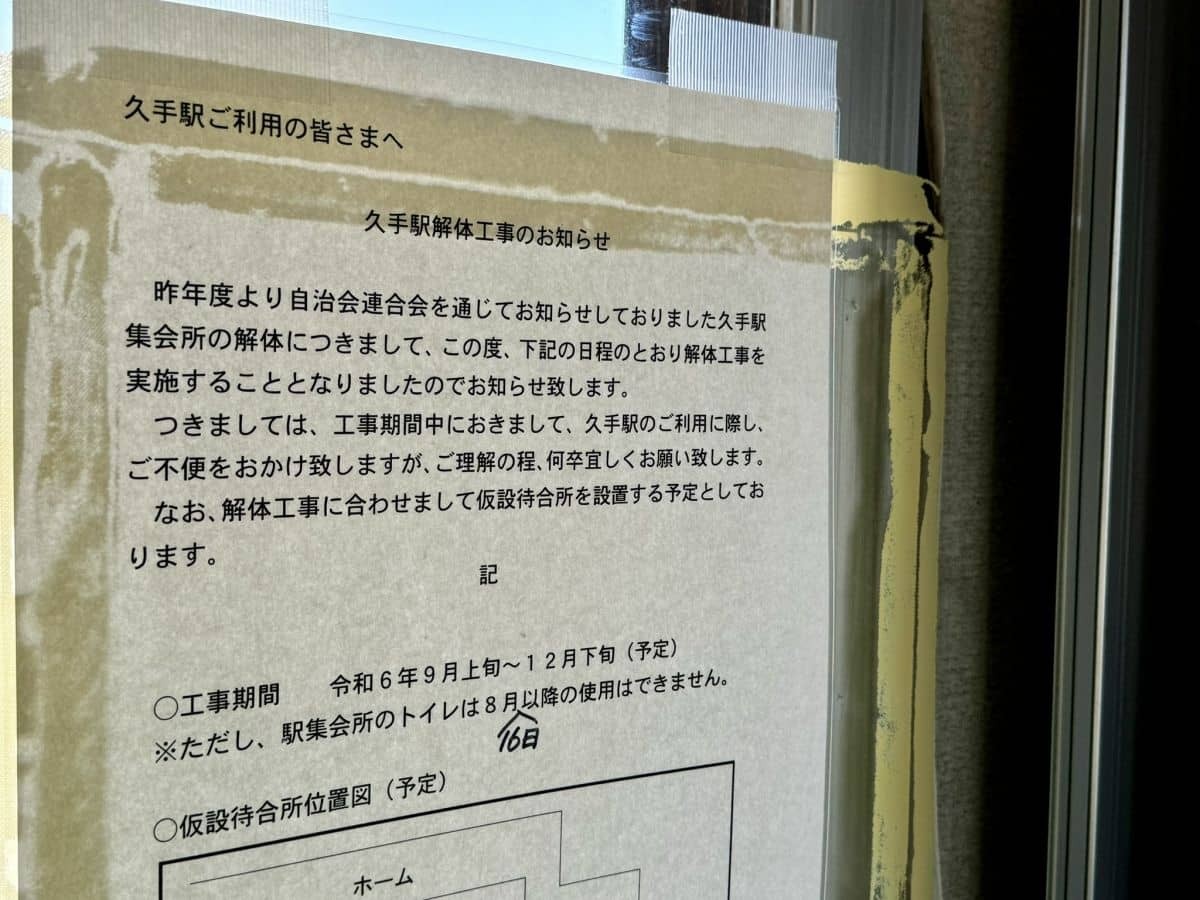 久手駅ご利用の皆さまへ
久手駅解体工事のお知らせ
昨年度より自治会連合会を通じてお知らせしておりました久手駅
集会所の解体につきまして、この度、下記の日程のとおり解体工事を
実施することとなりましたのでお知らせ致します。
つきましては、工事期間中におきまして、久手駅のご利用に際し、
ご不便をおかけ致しますが、ご理解の程、何卒宜しくお願い致します。
なお、解体工事に合わせまして仮設待合所を設置する予定としてお
ります。
記
○工事期間 令和6年9月上旬~12月下旬(予定)
※ただし、駅集会所のトイレは8月以降の使用はできません。
16日
○仮設待合所位置図(予定)
ホーム